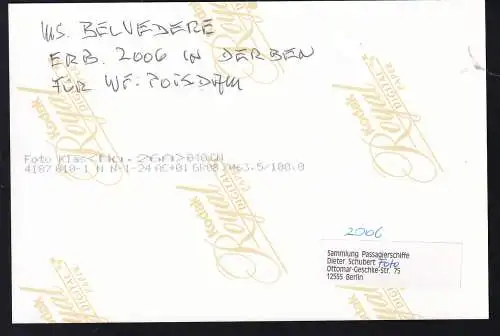 MS. BELVEDERE
ERB. 2006 IN DERBEN
FÜR WF. POTSDAM
Foto Klas
4187 010-1 N N-1-24 AC+01
2006
Sammlung Passagierschiffe
Dieter Schubert Foto
Ottomar-Geschke-Str. 75
12555 Berlin
Kodak
Royal
DIGITAL
PAPER